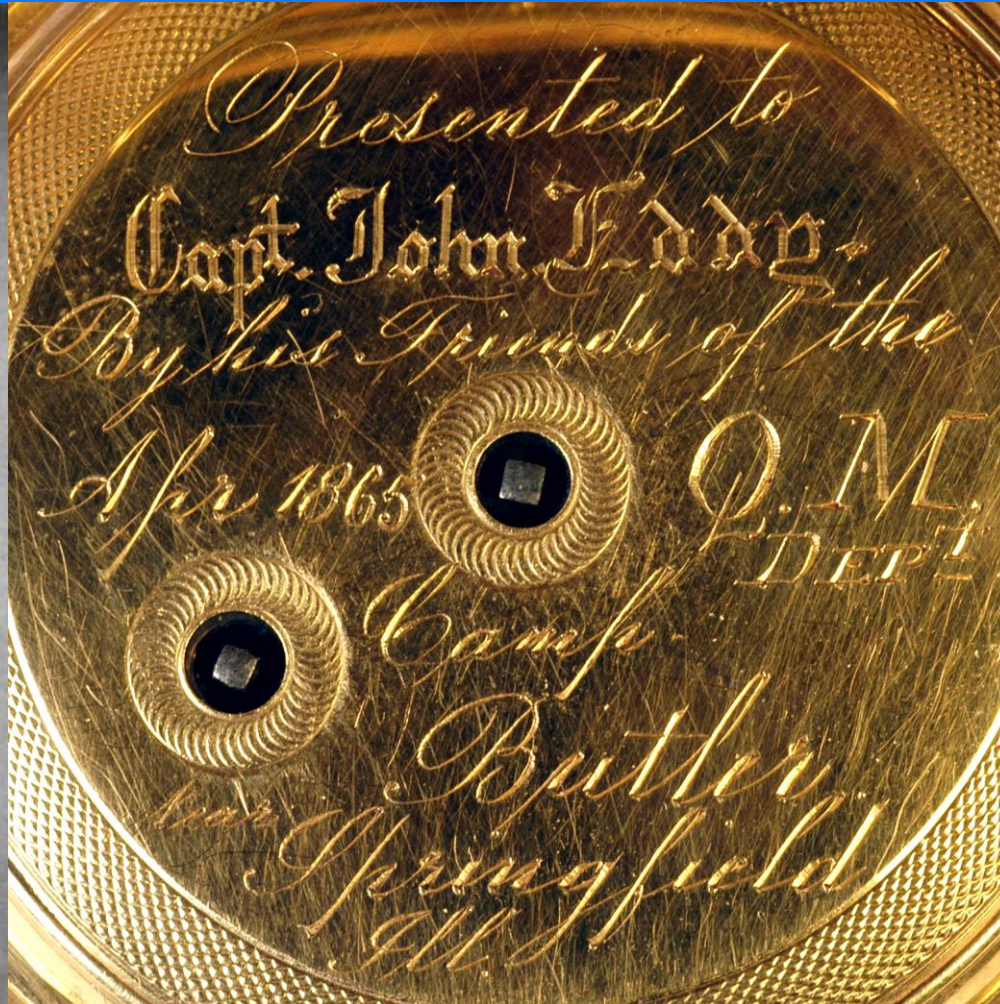 Presented to
Capt. John Eddy.
By his Friends of the
Apr 1865 Q.M.
DEPT
Camp
Butler
near Springfield
Ill.